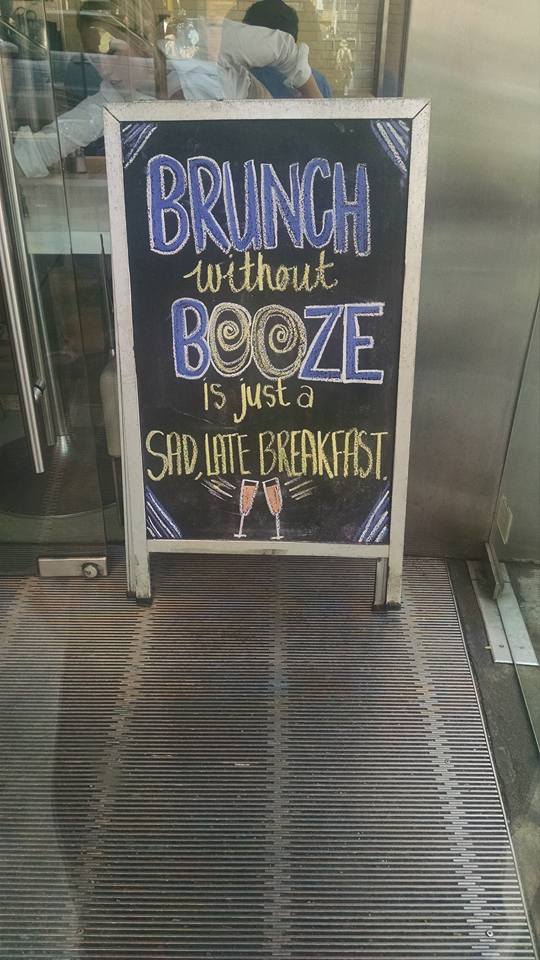 BRUNCH
without
BOOZE
is just a
SAD, LATE BREAKFAST.